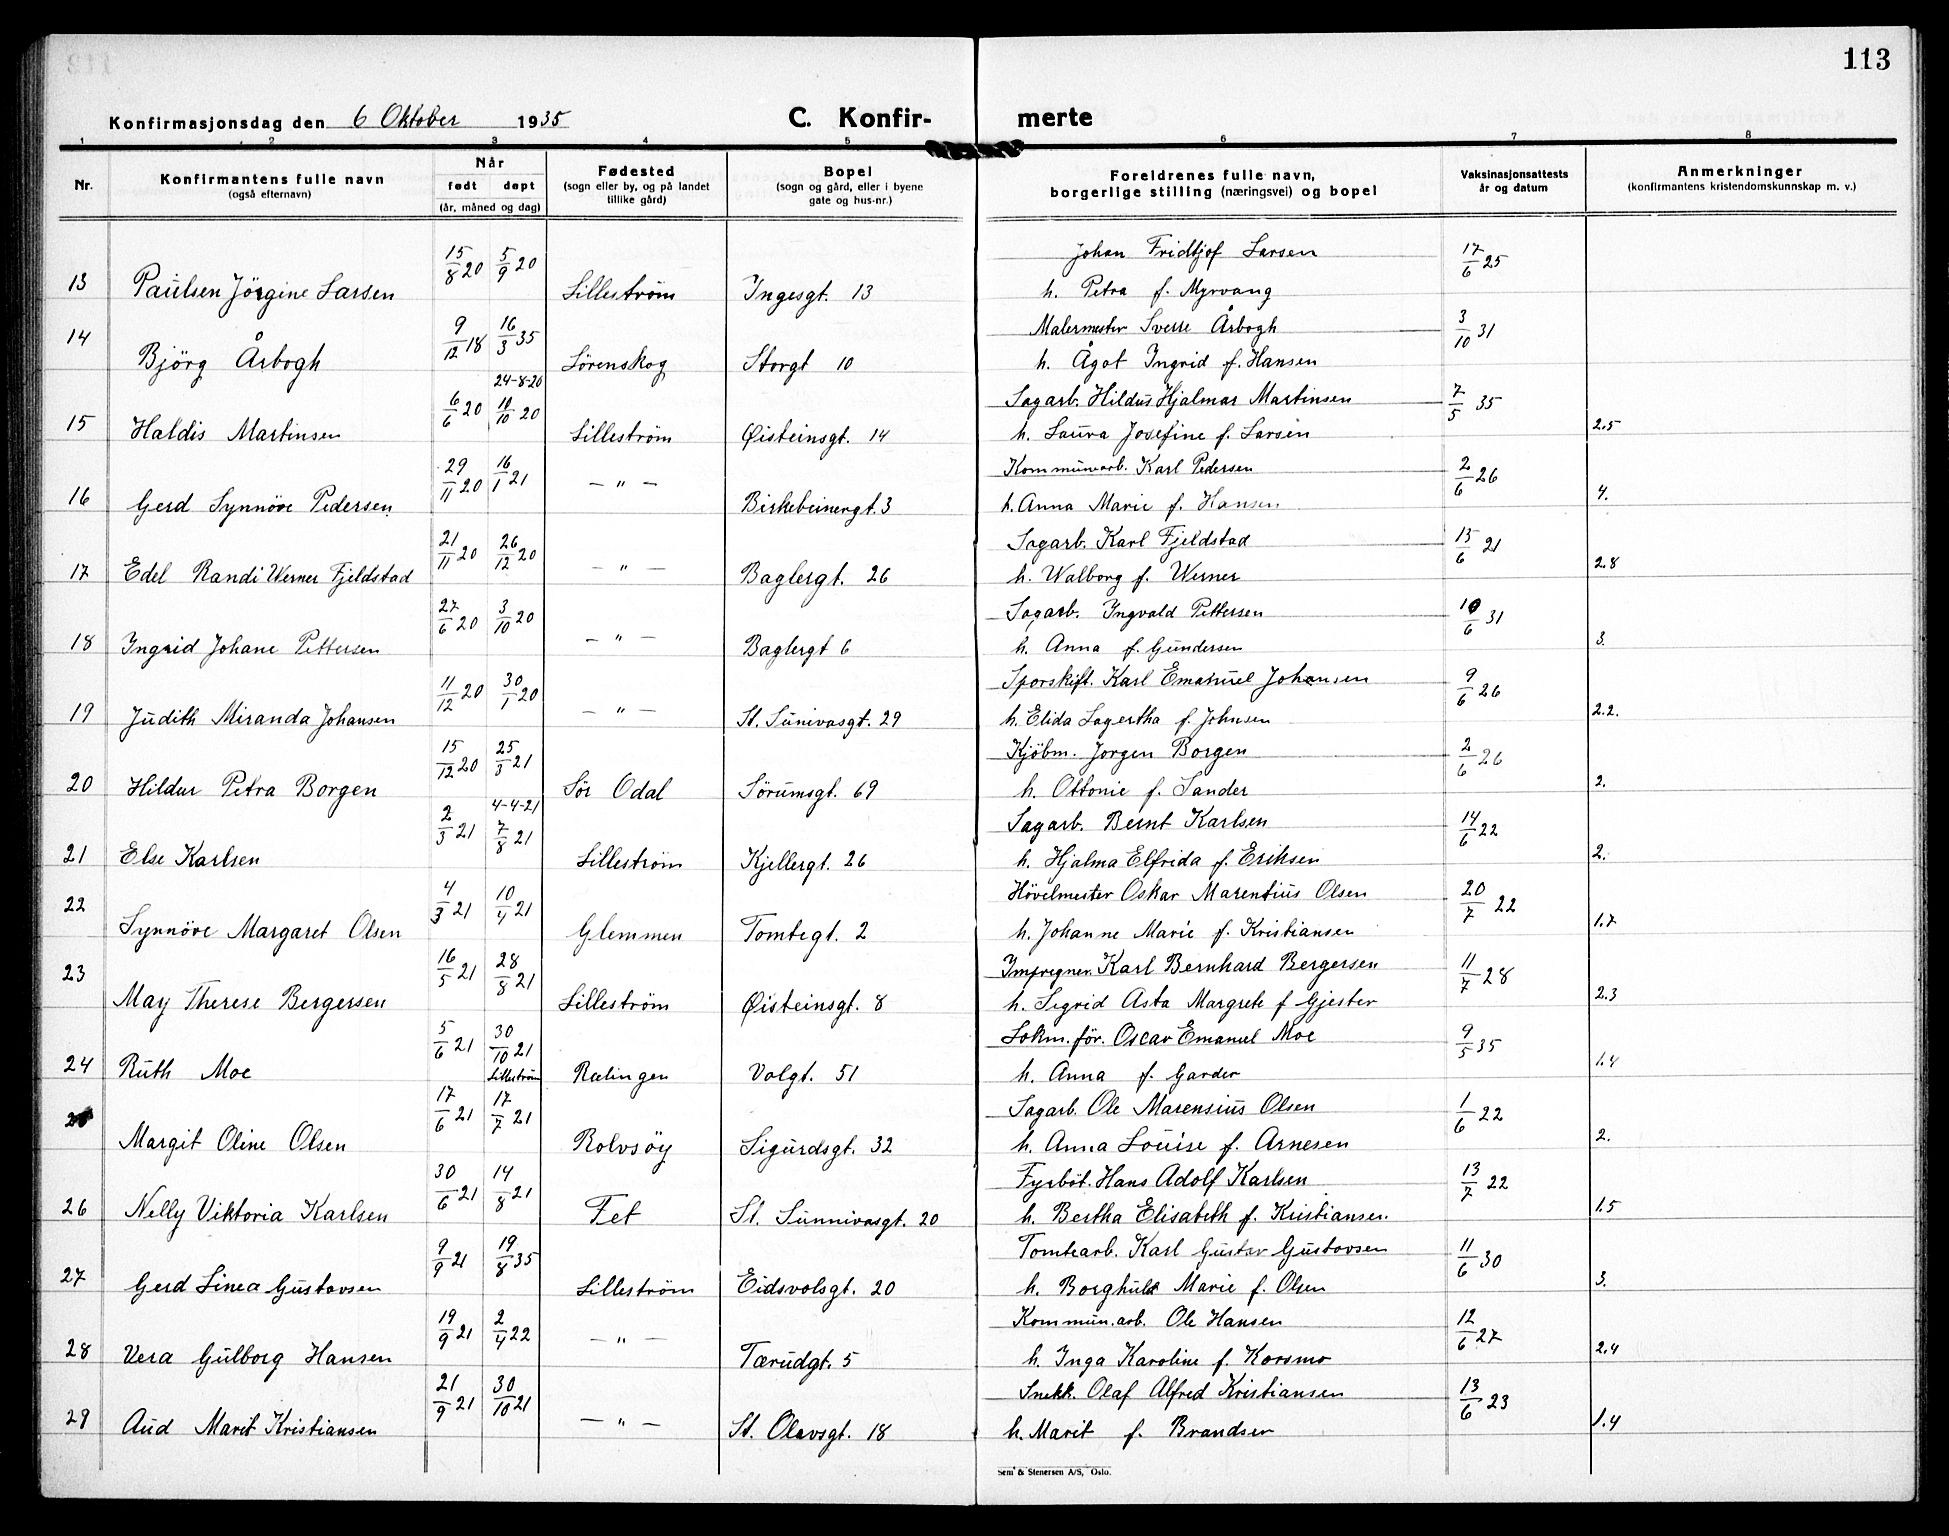 113
Konfirmasjonsdag den 6 Oktober 1935 C. Konfir- merte
1 2 3 4 5 6 7 8
Nr. Konfirmantens fulle navn (også efternavn) Når født døpt (år, måned og dag) Fødested (sogn eller by, og på landet tillike gård) Bopel (sogn og gård, eller i byene gate og hus-nr.) Foreldrenes fulle navn, borgerlige stilling (næringsvei) og bopel Vaksinasjonsattests år og datum Anmerkninger (konfirmantens kristendomskunnskap m. v.)
15/8 20 5/9 20 Johan Fridtjof Larsen 17/6 25
13 Paulsen Jörgine Larsen Lilleström Ingesgt. 13 h. Petra f. Myrvang
14 9/12 18 16/3 35 Malermester Sverre Årbogh 3/10 31
Björg Årbogh Lörenskog Storgt 10 h. Ågot Ingrid f. Hansen
24-8-20
6/6 20 10/10 20 Sagarb. Hildus Hjalmar Martinsen 7/5 35
15 Haldis Martinsen Lilleström Øisteinsgt. 14 h. Laura Josefine f. Larsen 2.5
29/11 20 16/1 21 — " — Kommunearb. Karl Pedersen 2/6 26
16 Gerd Synnöve Pedersen Birkebeinergt. 3 h. Anna Marie f. Hansen 4.
21/11 20 26/12 20 Sagarb. Karl Fjeldstad 15/6 21
17 Edel Randi Werner Fjeldstad — " — Baglergt. 26 h. Walborg f. Werner 2.8
27/6 20 3/10 20 Sagarb. Ingvald Pettersen 10/6 31
18 Ingrid Johane Pettersen — " — Baglergt 6 h. Anna f. Gundersen 3.
11/12 20 30/1 20 Sporskift. Karl Emanuel Johansen 9/6 26
19 Judith Miranda Johansen — " — St. Sunivasgt. 29 h. Elida Lagertha f. Johnsen 2.2.
15/12 20 25/3 21 Kjöbm. Jorgen Borgen 2/6 26
20 Hildur Petra Borgen Sör Odal Sörumsgt. 69 h. Ottonie f. Sander 2.
4-4-21
2/3 21 7/8 21 Sagarb. Bernt Karlsen 14/6 22
21 Else Karlsen Lilleström Kjellergt. 26 h. Hjalma Elfrida f. Eriksen 2.
22 4/3 21 10/4 21 Hövelmester Oskar Marentius Olsen 20/7 22
Synnöve Margaret Olsen Glemmen Tomtegt. 2 h. Johanne Marie f. Kristiansen 1.7
23 16/5 21 28/8 21 Impregner. Karl Bernhard Bergersen 11/7 28
May Therese Bergersen Lilleström Øisteinsgt. 8 h. Sigrid Asta Margrete f Gjester 2.3
5/6 21 30/10 21 Lokm.för. Oscar Emanuel Moe 9/5 35
24 Ruth Moe Lilleström Rælingen Volgt. 51 h. Anna f. Garder 1.4
17/6 21 17/7 21 Sagarb. Ole Marensius Olsen 1/6 22
Margit Oline Olsen Rolvsöy Sigurdsgt. 32 h. Anna Louise f. Arnesen 2.
30/6 21 14/8 21 Fyrböt. Hans Adolf Karlsen 13/7 22
26 Nelly Viktoria Karlsen Fet St. Sunnivasgt. 20 h. Bertha Elisabeth f. Kristiansen. 1.5
9/9 21 19/8 35 Tomtearb. Karl Gustav Gustavsen 11/6 30
27 Gerd Linea Gustavsen Lilleström Eidsvolsgt. 20 h. Borghild Marie f. Olsen 3.
19/9 21 2/4 22 Kommun.arb. Ole Hansen 12/6 27
28 Vera Gulborg Hansen — " — Tærudgt. 5 h. Inga Karoline f. Korsmo 2.4
21/9 21 30/10 21 Snekk. Olaf Alfred Kristiansen 13/6 23
29 Aud Marit Kristiansen — " — St. Olavsgt. 18 h. Marit f. Brandser 1.4
Sem & Stenersen A/S, Oslo.